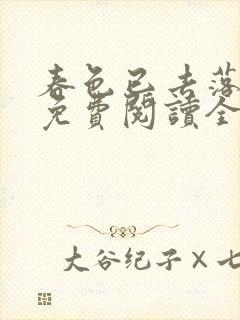 春色已去落
免費閱讀全
大谷纪子×七